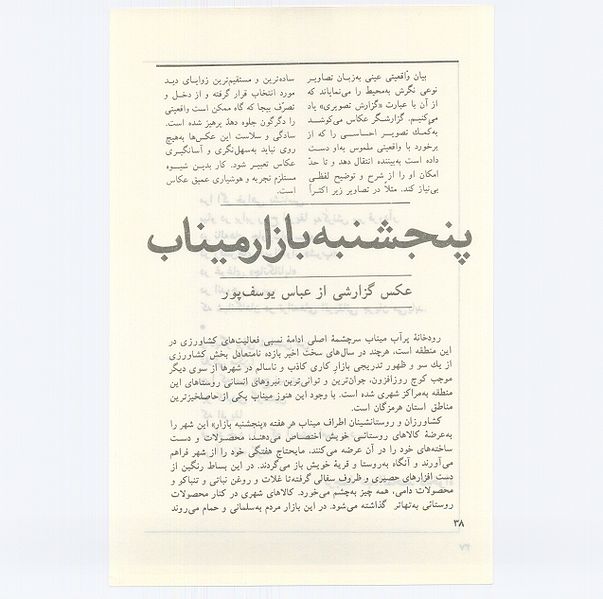 بیان واقعیتی عینی به‌زبان تصاویر
نوعی نگرش به‌محیط را می‌نمایاند که
از آن با عبارت «گزارش تصویری» یاد
می‌کنیم. گزارشگر عکاس می‌کوشد
به‌کمك تصویر احساسی را که از
برخورد با واقعیتی ملموس به‌او دست
داده است به‌بیننده انتقال دهد و تا حدّ
امکان او را از شرح و توضیح لفظی
بی‌نیاز کند. مثلاً در تصاویر زیر اکثراً
ساده‌ترین و مستقیم‌ترین زوایای دید
مورد انتخاب قرار گرفته و از دخل و
تصرّف بیجا که گاه ممکن است واقعیتی
را دگرگون جلوه دهد پرهیز شده است.
سادگی و سلاست این عکس‌ها به‌هیچ
روی نباید به‌سهل‌نگری و آسانگیری
عکاس تعبیر شود. کار بدین شیوه
مستلزم تجربه و هوشیاری عمیق عکاس
است.
پنجشنبه بازار میناب
عکس گزارشی از عباس یوسف‌پور
رودخانهٔ پرآب میناب سرچشمهٔ اصلی ادامهٔ نسبی فعالیت‌های کشاورزی در
این منطقه است، هرچند در سال‌های سخت اخیر بازده نامتعادل بخش کشاورزی
از یك سو و ظهور تدریجی بازارِ کاری کاذب و ناسالم در شهرها از سوی دیگر
موجب کوچ روزافزون، جوان‌ترین و توانی‌ترین نیروهای انسانی روستاهای این
منطقه به‌مراکز شهری شده است. با وجود این هنوز میناب یکی از حاصلخیزترین
مناطق استان هرمزگان است.
کشاورزان و روستانشینان اطراف میناب هر هفته «پنجشنبه بازار» این شهر را
به‌عرضهٔ کالاهای روستائی خویش اختصاص می‌دهند. محصولات و دست
ساخته‌های خود را در آن عرضه می‌کنند. مایحتاج هفتگی خود را از شهر فراهم
می‌آورند و آنگاه به‌روستا و قریهٔ خویش باز می‌گردند. در این بساط رنگین از
دست افزارهای حصیری و ظروف سفالی گرفته‌تا غلات و روغن نباتی و تنباکو و
محصولات دامی، همه چیز به‌چشم می‌خورد. کالاهای شهری در کنار محصولات
روستائی به‌تهاتر گذاشته می‌شود. در این بازار مردم به‌سلمانی و حمام می‌روند
۳۸